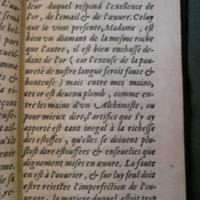 leur duquel respond l'excellence de
l'or, de l'email & de l'œuure. Celuy
que ie vous presente, Madame, est
bien vn diamant de la mesme roche
que l'autre, il est bien enchassé de-
dans de l'or (car l'excuse de la pau-
ureté de nostre langue seroit fause &
honteuse) mais entre mes mains,
cet or est deuenu plomb, comme en-
tre les mains d'vn Alchimiste, ou
pour mieux dire, l'artifice que i'y ay
apporté est tant inegal à la richesse
des estoffes, qu'elles se doiuent plus-
tost dire estouffees & enseuelies que
dignement mises en œuure. La faute
en est à l'ouurier, & sur luy seul doit
estre reiettee l'imperfection de l'ou-
urage, la matiere duquel estoit tout